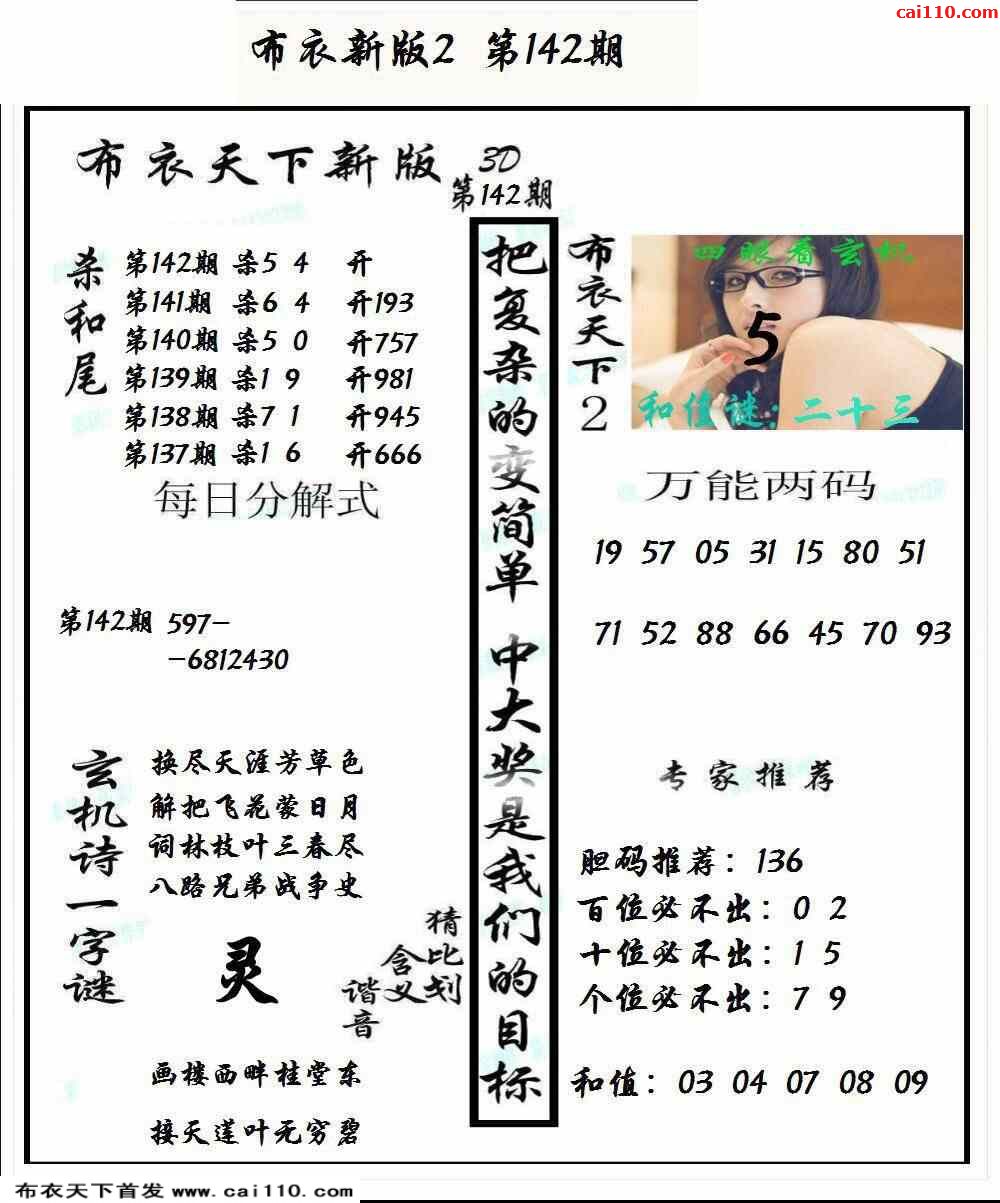 cai110.com
布衣新版2 第142期
布衣天下新版
3D
第142期
杀和尾
第142期 杀5 4 开
第141期 杀6 4 开193
第140期 杀5 0 开757
第139期 杀1 9 开981
第138期 杀7 1 开945
第137期 杀1 6 开666
每日分解式
第142期 597-
-6812430
玄机诗一字谜
换尽天涯芳草色
解把飞花蒙日月
词林枝叶三春尽
八路兄弟战争史
灵
猜比划
含义
谐音
画楼西畔桂堂东
接天莲叶无穷碧
把复杂的变简单 中大奖是我们的目标
布衣天下2
四眼看玄机
5
和值谜:二十三
万能两码
19 57 05 31 15 80 51
71 52 88 66 45 70 93
专家推荐
胆码推荐：136
百位必不出：0 2
十位必不出：1 5
个位必不出：7 9
和值：03 04 07 08 09
布衣天下首发 www.cai110.com